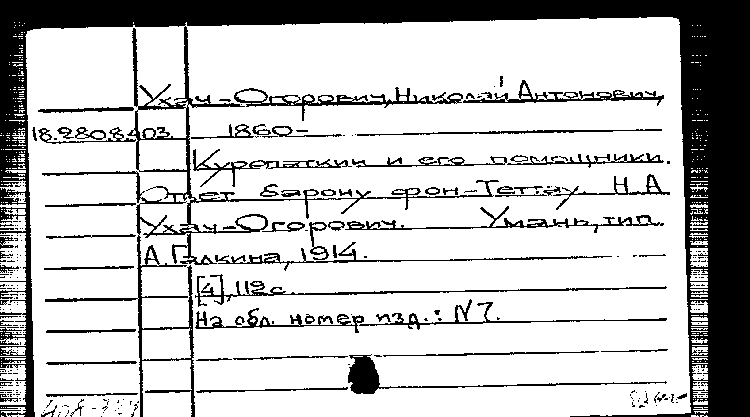 Ухач-Огорович, Николай Антонович,
18.280.8.403 1860-
Куропаткин и его помощники.
Ответ барону фон-Теттау. Н.А.
Ухач-Огорович. Умань, тип.
А. Галкина, 1914.
[4], 119 с.
На обл. номер изд.: N 7.